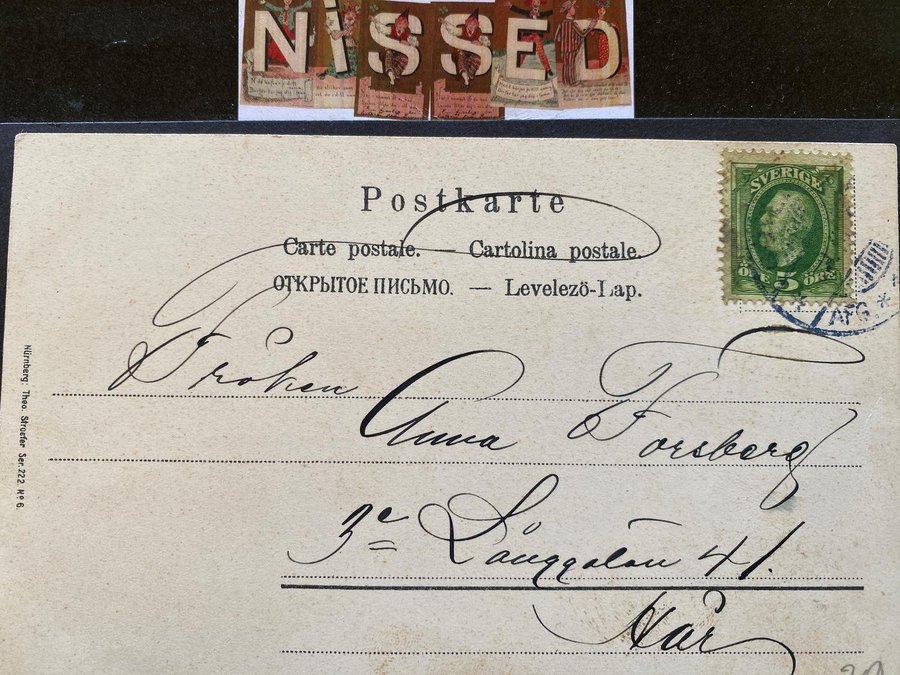 NISSED
Postkarte
Carte postale. — Cartolina postale.
ОТКРЫТОЕ ПИСЬМО. — Levelezö-Lap.
SVERIGE
5
ÖRE 5 ÖRE
AFG.
Nürnberg: Theo. Stroefer Ser. 222. Nº 6.
Fröken
Anna Forsberg
3e Långgatan 41.
Här